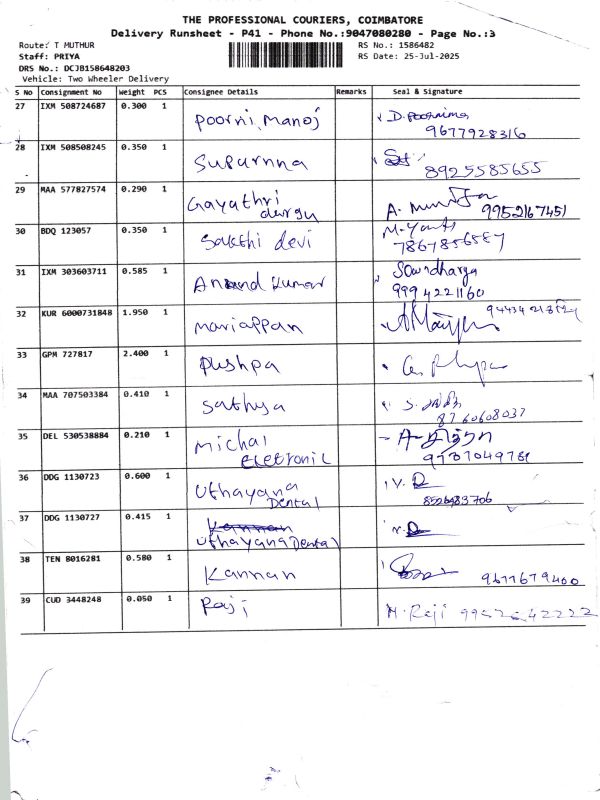 THE PROFESSIONAL COURIERS, COIMBATORE
Delivery Runsheet - P41 - Phone No.:9047080280 - Page No.:3
Route: T MUTHUR
RS No.: 1586482
Staff: PRIYA
RS Date: 25-Jul-2025
DRS No.: DCJB158648203
Vehicle: Two Wheeler Delivery
S No Consignment No Weight PCS Consignee Details Remarks Seal & Signature
27 IXM 508724687 0.300 1 Poorni Manoj D. Poornima
9677928316
28 IXM 508508245 0.350 1 Supurnna
8925585655
29 MAA 577827574 0.290 1 Gayathri
durga
9952167451
30 BDQ 123057 0.350 1 Sakthi devi
7867856587
31 IXM 303603711 0.585 1 Anand Kumar Soundharya
9994221160
32 KUR 6000731848 1.950 1 Mariappan
33 GPM 727817 2.400 1 Pushpa
34 MAA 707503384 0.410 1 Sathya
8760608037
35 DEL 530538884 0.210 1 Michal
Eletronic
36 DDG 1130723 0.600 1 Uthayana
Dental
37 DDG 1130727 0.415 1 Kannan
Uthayana Dental
38 TEN 8016281 0.580 1 Kannan
9677679460
39 CUD 3448248 0.050 1 Raji M. Raji